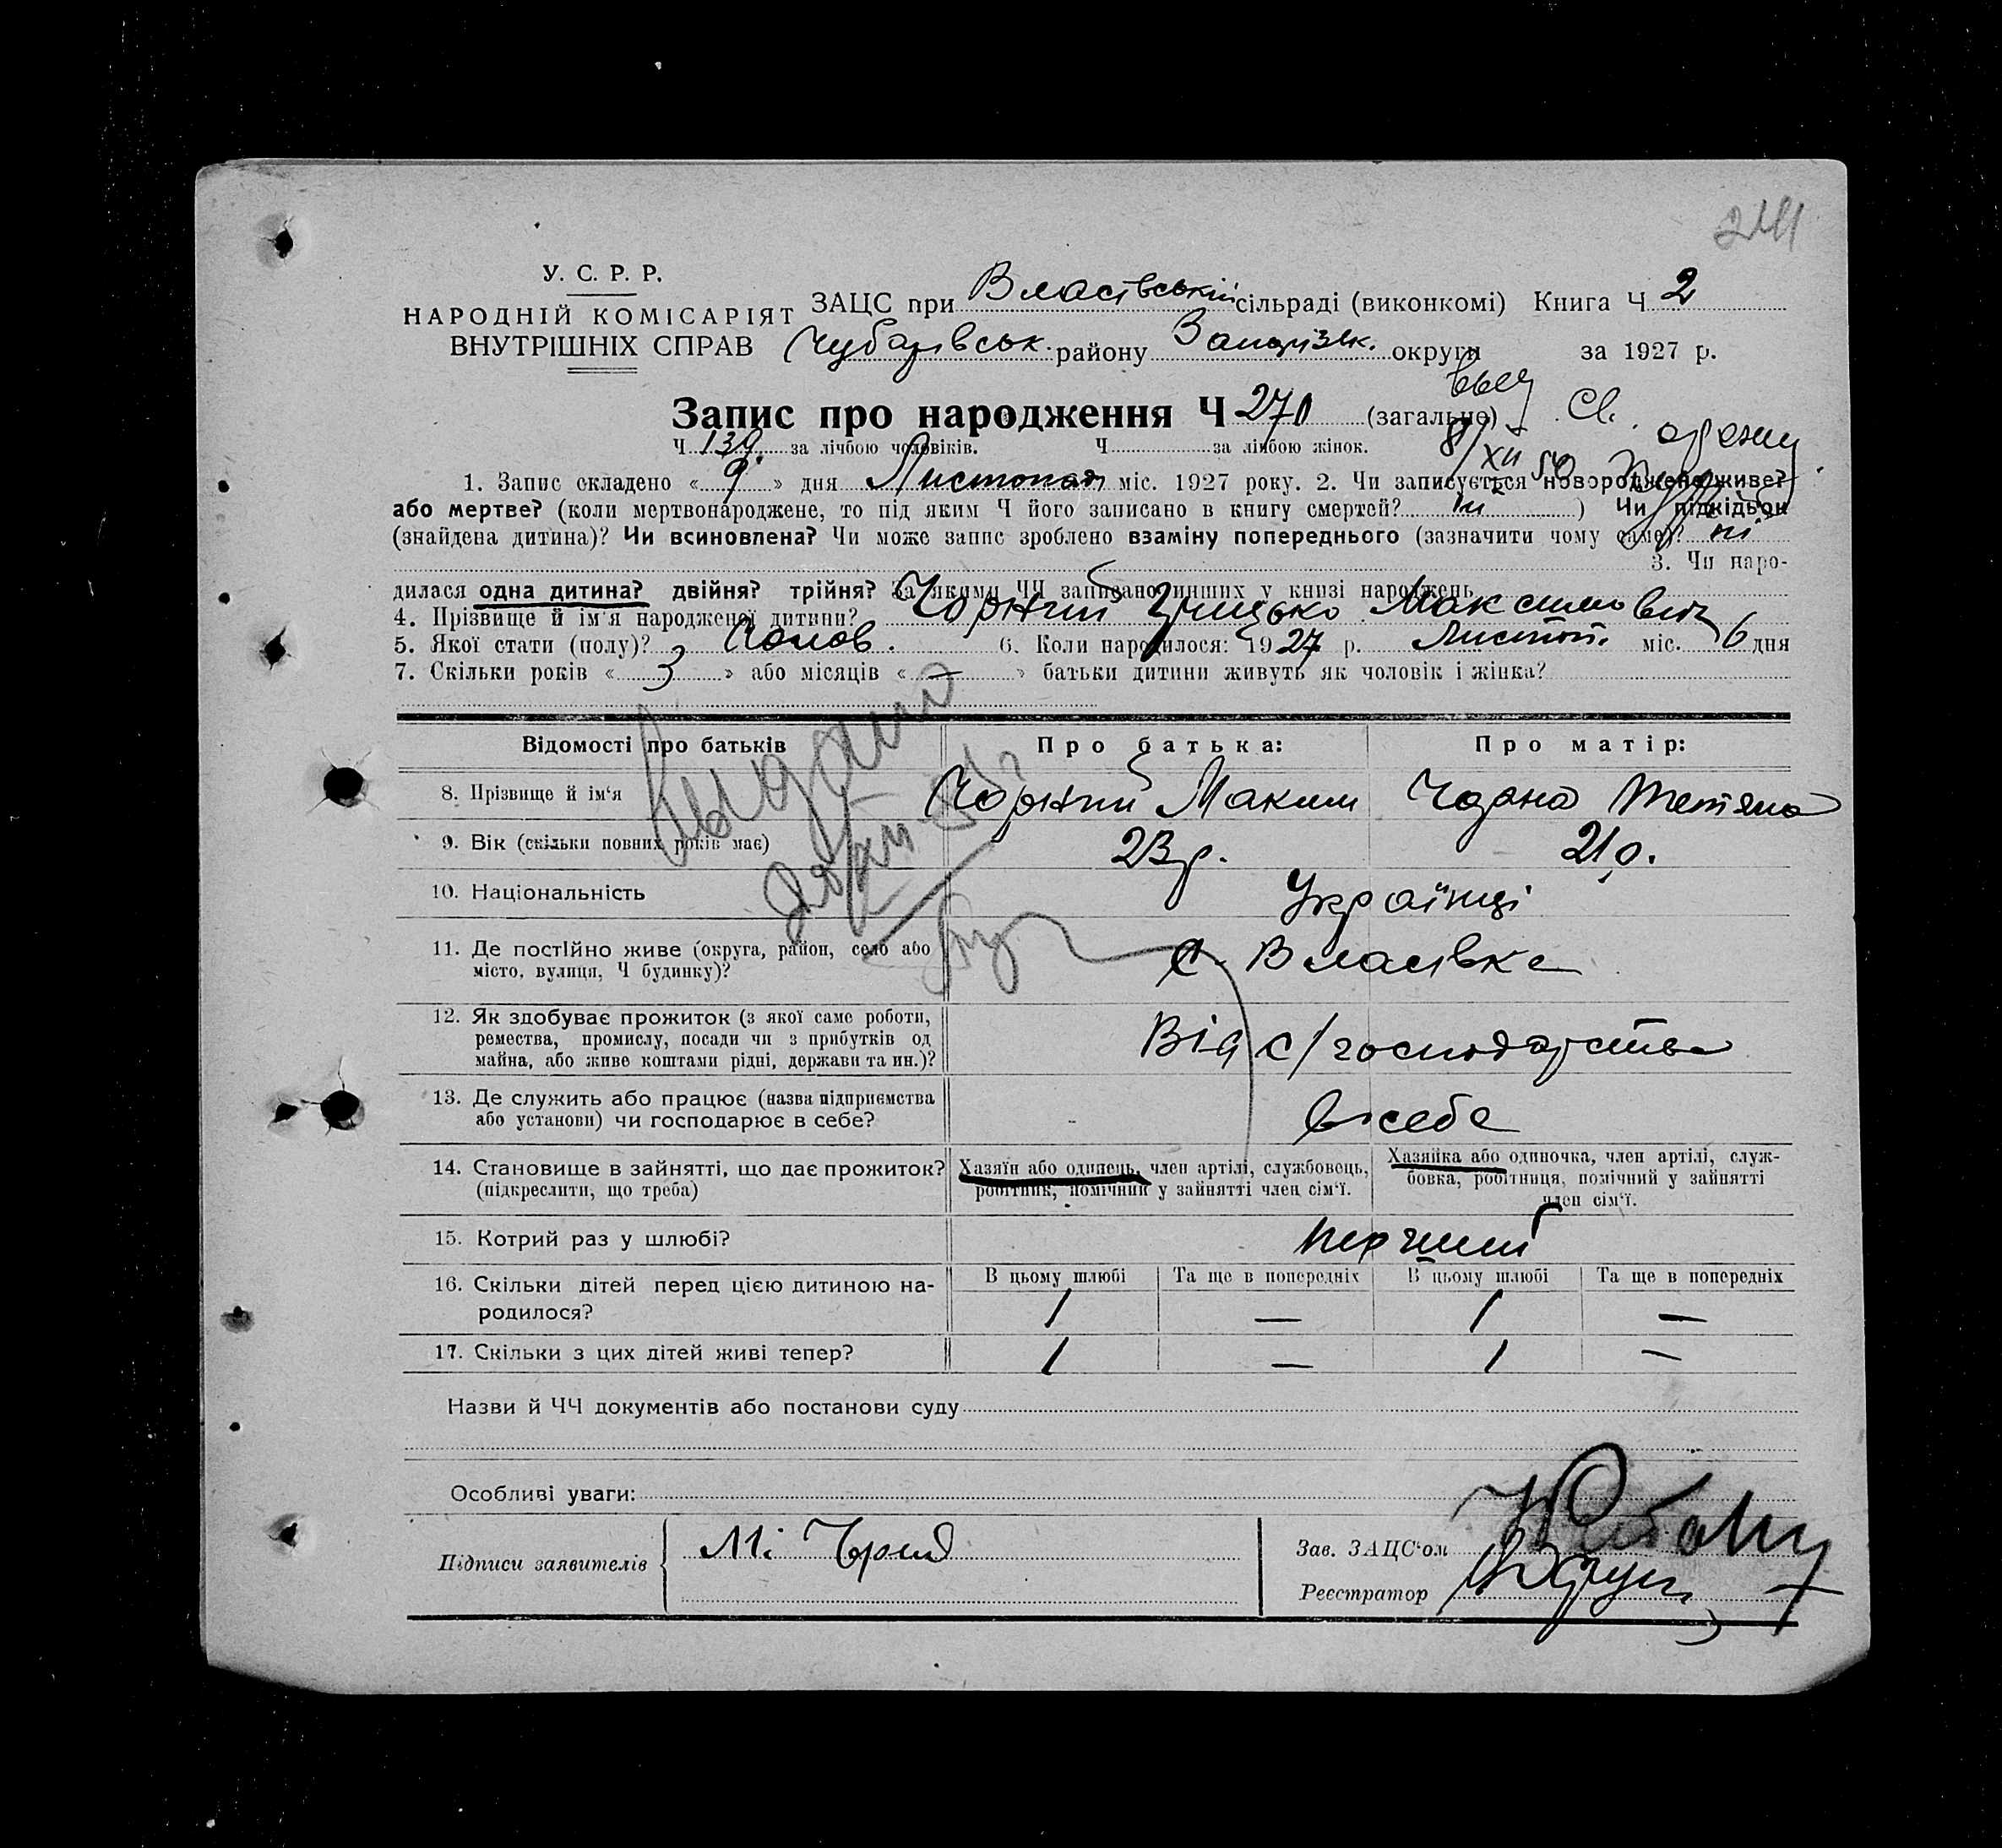 241
У. С. Р. Р.
НАРОДНІЙ КОМІСАРІЯТ
ВНУТРІШНІХ СПРАВ
ЗАЦС при Власівській сільраді (виконкомі) Книга Ч 2
Чубарівськ. району Запорізьк. округи за 1927 р.
Запис про народження Ч 270 (загальне)
Ч 139. за лічбою чоловіків. Ч за лічбою жінок.
8/XII 50
1. Запис складено « 9 » дня Листопад міс. 1927 року. 2. Чи записується новороджене живе?
або мертве? (коли мертвонароджене, то під яким Ч його записано в книгу смертей? ні ) Чи підкідьок
(знайдена дитина)? Чи всиновлена? Чи може запис зроблено взаміну попереднього (зазначити чому саме)? ні
3. Чи наро-
дилася одна дитина? двійня? трійня? За якими ЧЧ записано инших у книзі народжень
4. Прізвище й ім'я народженої дитини? Чорний Грицько Максимович
5. Якої стати (полу)? Чолов. 6. Коли народилося: 1927 р. Листоп. міс. 6 дня
7. Скільки років « 3 » або місяців « — » батьки дитини живуть як чоловік і жінка?
Відомості про батьків Про батька: Про матір:
8. Прізвище й ім'я Чорний Максим Чорна Тетяна
9. Вік (скільки повних років має) 23 р. 21 р.
10. Національність Українці
11. Де постійно живе (округа, район, село або
місто, вулиця, Ч будинку)? с. Власівка
12. Як здобуває прожиток (з якої саме роботи,
ремества, промислу, посади чи з прибутків од
майна, або живе коштами рідні, держави та ин.)? Від с/господарства
13. Де служить або працює (назва підприємства
або установи) чи господарює в себе? в себе
14. Становище в зайнятті, що дає прожиток?
(підкреслити, що треба)
Хазяїн або одинець, член артілі, службовець,
робітник, помічний у зайнятті член сім'ї.
Хазяйка або одиночка, член артілі, служ-
бовка, робітниця, помічний у зайнятті
член сім'ї.
15. Котрий раз у шлюбі? перший
16. Скільки дітей перед цією дитиною на-
родилося?
В цьому шлюбі Та ще в попередніх В цьому шлюбі Та ще в попередніх
1 — 1 —
17. Скільки з цих дітей живі тепер? 1 — 1 —
Назви й ЧЧ документів або постанови суду
Особливі уваги:
Підписи заявителів
Зав. ЗАЦС'ом
Реєстратор